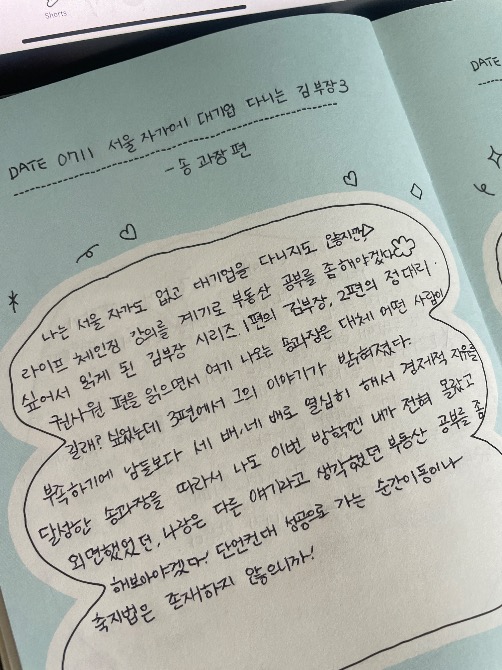 Shorts
DATE 0711 서울 자가에 대기업 다니는 김 부장 3
- 송 과장 편
DATE
나는 서울 자가도 없고 대기업을 다니지도 않지만
라이프 체인징 강의를 계기로 부동산 공부를 좀 해야겠다
싶어서 읽게 된 김부장 시리즈. 1편의 김부장, 2편의 정대리.
권사원 편을 읽으면서 여기 나오는 송과장은 대체 어떤 사람이
길래? 싶었는데 3편에서 그의 이야기가 밝혀졌다.
부족하기에 남들보다 세 배, 네 배로 열심히 해서 경제적 자유를
달성한 송과장을 따라서 나도 이번 방학엔 내가 전혀 몰랐고
외면했었던, 나랑은 다른 얘기라고 생각했던 부동산 공부를 좀
해보아야겠다! 단언컨대 성공으로 가는 순간이동이나
축지법은 존재하지 않으니까!